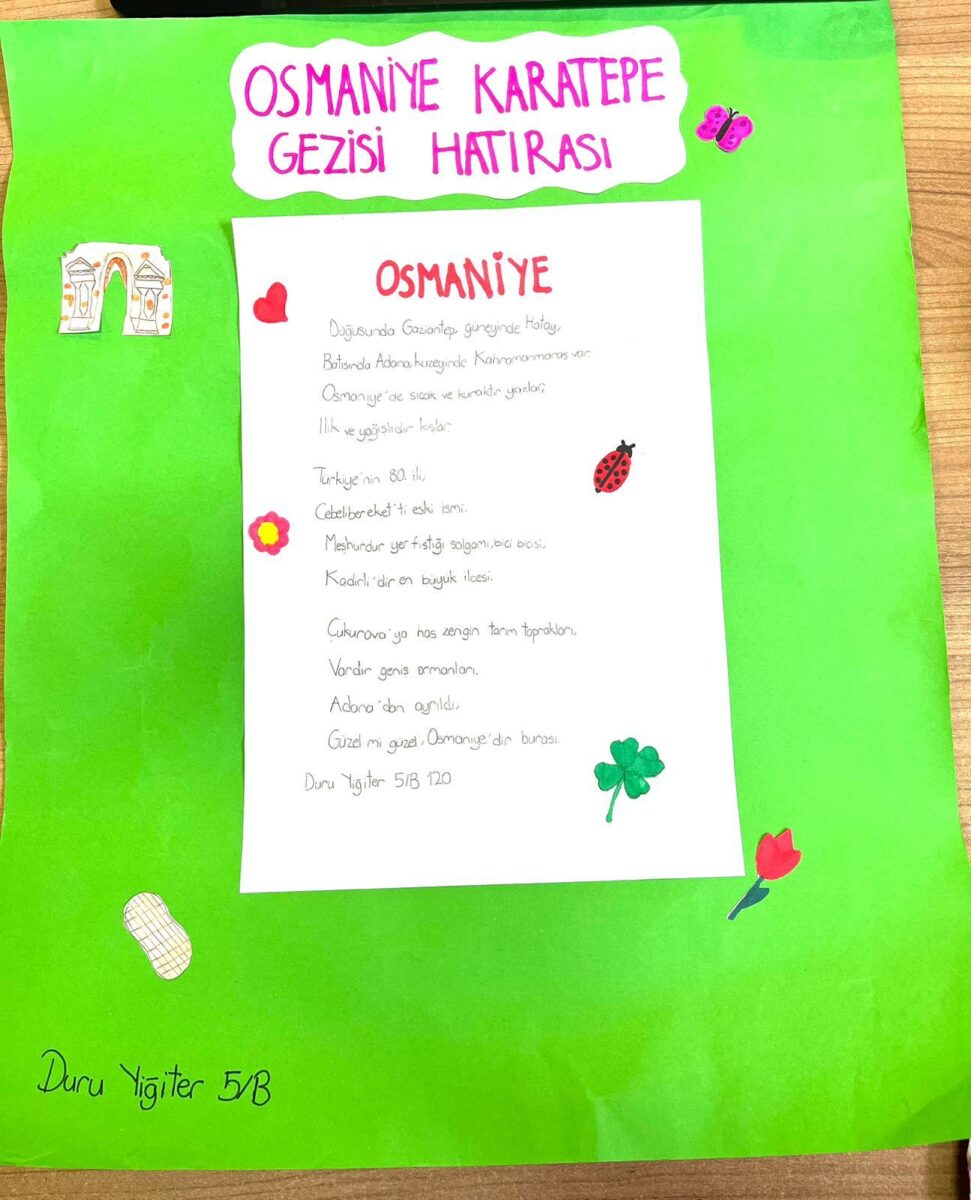 OSMANİYE KARATEPE
GEZİSİ HATIRASI
OSMANİYE
Doğusunda Gaziantep, güneyinde Hatay,
Batısında Adana, kuzeyinde Kahramanmaraş var.
Osmaniye'de sıcak ve kuraktır yazlar,
Ilık ve yağışlıdır kışlar.
Türkiye'nin 80. ili,
Cebelibereket'ti eski ismi.
Meşhurdur yer fıstığı, şalgamı, bici bicisi,
Kadirli'dir en büyük ilçesi.
Çukurova'ya has zengin tarım toprakları,
Vardır geniş ormanları.
Adana'dan ayrıldı,
Güzel mi güzel, Osmaniye'dir burası.
Duru Yiğiter 5/B 120
Duru Yiğiter 5/B